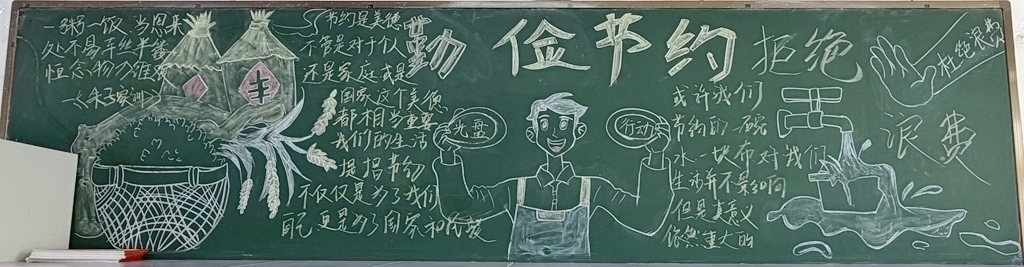 一粥一饭,当思来
处不易半丝半缕
恒念物力维艰
—《朱子家训》
丰
节约是美德
不管是对于个人
还是家庭或是
国家这个美德
都相当重要
我们的生活
提招节约
不仅仅是为了我们
自己更是为了国家和民族
勤俭节约 拒绝
浪费
光盘
行动
或许我们
节约的一碗
水一块布对我们
生活并不是影响
但是其意义
依然重大的
杜绝浪费